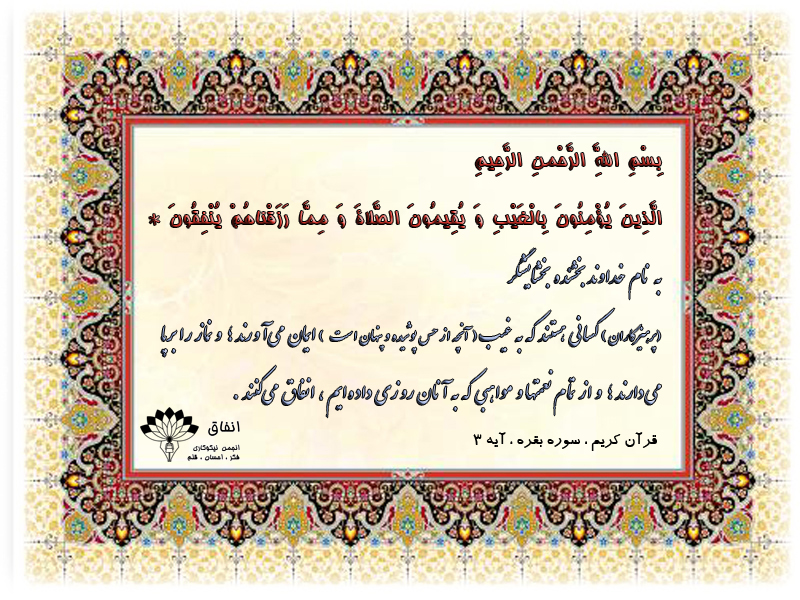 بِسْمِ اللَّهِ الرَّحْمنِ الرَّحِيمِ
الَّذِينَ يُؤْمِنُونَ بِالْغَيْبِ وَ يُقِيمُونَ الصَّلاةَ وَ مِمَّا رَزَقْناهُمْ يُنْفِقُونَ *
به نام خداوند بخشنده بخشایشگر
(پرهیزکاران) کسانی هستند که به غیب (آنچه از حس پوشیده و پنهان است) ایمان می‌آورند؛ و نماز را برپا
می‌دارند؛ و از تمام نعمتها و مواهبی که به آنان روزی داده‌ایم ، انفاق می‌کنند .
قرآن کریم ، سوره بقره ، آیه ۳
انفاق
انجمن نیکوکاری
فکر ، احسان ، قلم